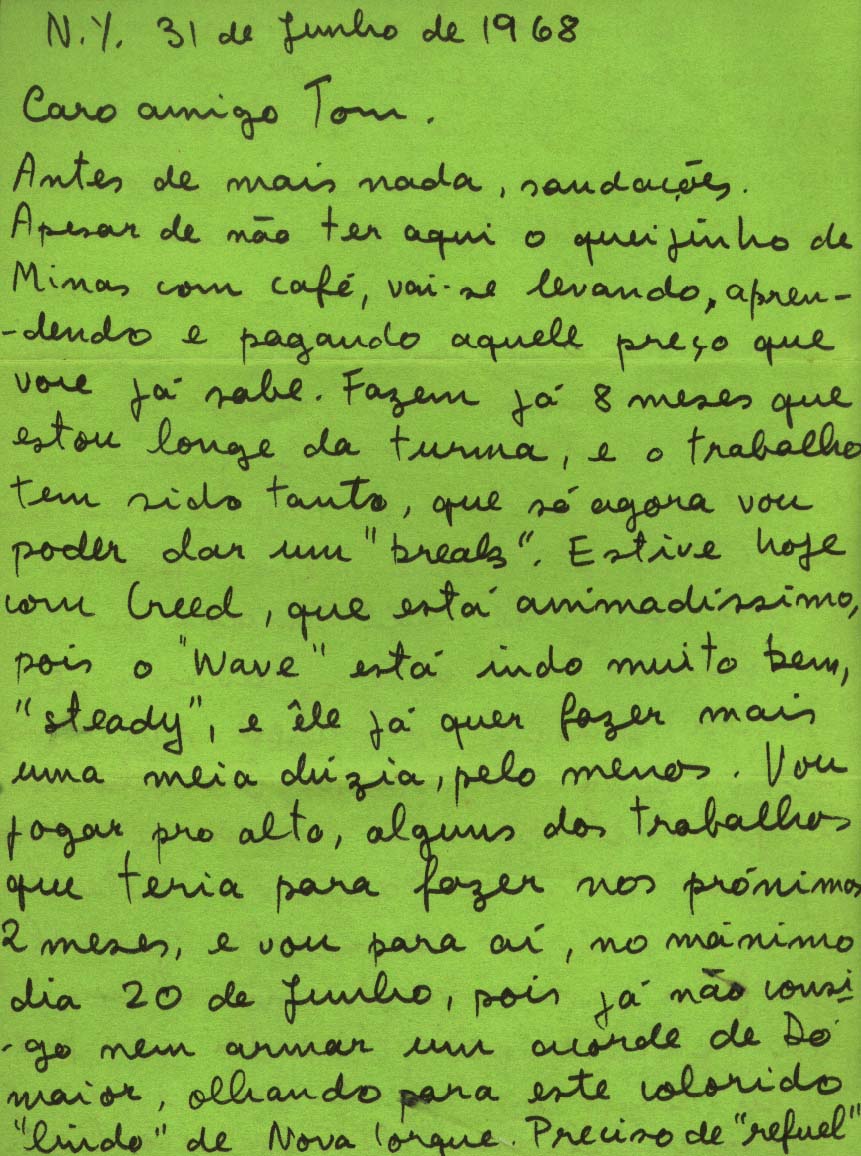 N.Y. 31 de Junho de 1968
Caro amigo Tom.
Antes de mais nada, saudações.
Apesar de não ter aqui o queijinho de
Minas com café, vai-se levando, apren-
-dendo e pagando aquele preço que
voce já sabe. Fazem já 8 meses que
estou longe da turma, e o trabalho
tem sido tanto, que só agora vou
poder dar um "break". Estive hoje
com Creed, que está animadíssimo,
pois o "Wave" está indo muito bem,
"steady", e êle já quer fazer mais
uma meia dúzia, pelo menos. Vou
jogar pro alto, alguns dos trabalhos
que teria para fazer nos próximos
2 meses, e vou para aí, no máximo
dia 20 de Junho, pois já não consi
-go nem armar um acorde de Dó
maior, olhando para este colorido
"lindo" de Nova Iorque. Preciso de "refuel"